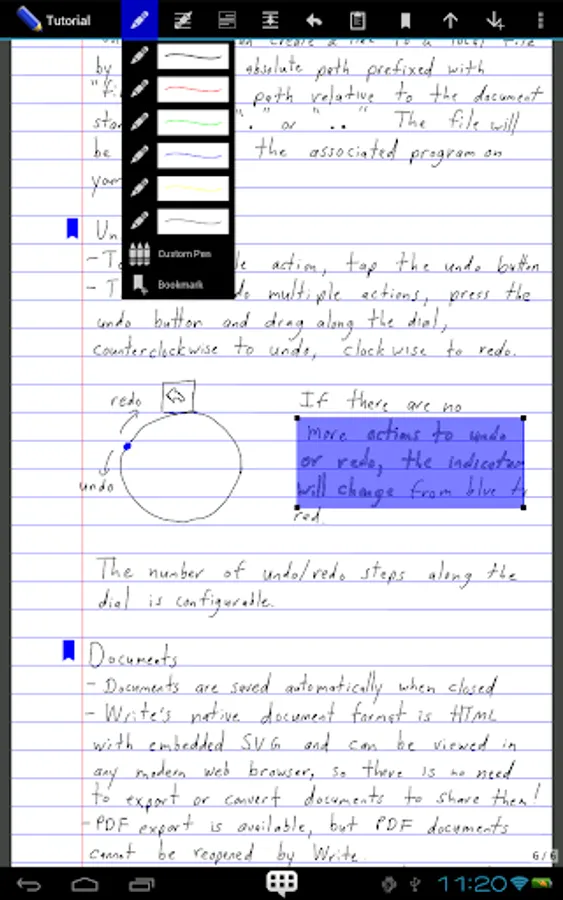 Tutorial
on create a link to a local file
by absolute path prefixed with
path relative to the document
"." or ".." The file will
be the associated program on
Un
action, tap the undo button
multiple actions, press the
undo button and drag along the dial,
counterclockwise to undo, clockwise to redo.
redo
undo
If there are no
more actions to undo
or redo, the indicator
will change from blue to
red.
The number of undo/redo steps along the
dial is configurable.
Documents
- Documents are saved automatically when closed
- Write's native document format is HTML
with embedded SVG and can be viewed in
any modern web browser, so there is no need
to export or convert documents to share them!
- PDF export is available, but PDF documents
cannot be reopened by Write.
Custom Pen
Bookmark
6/6
11:20